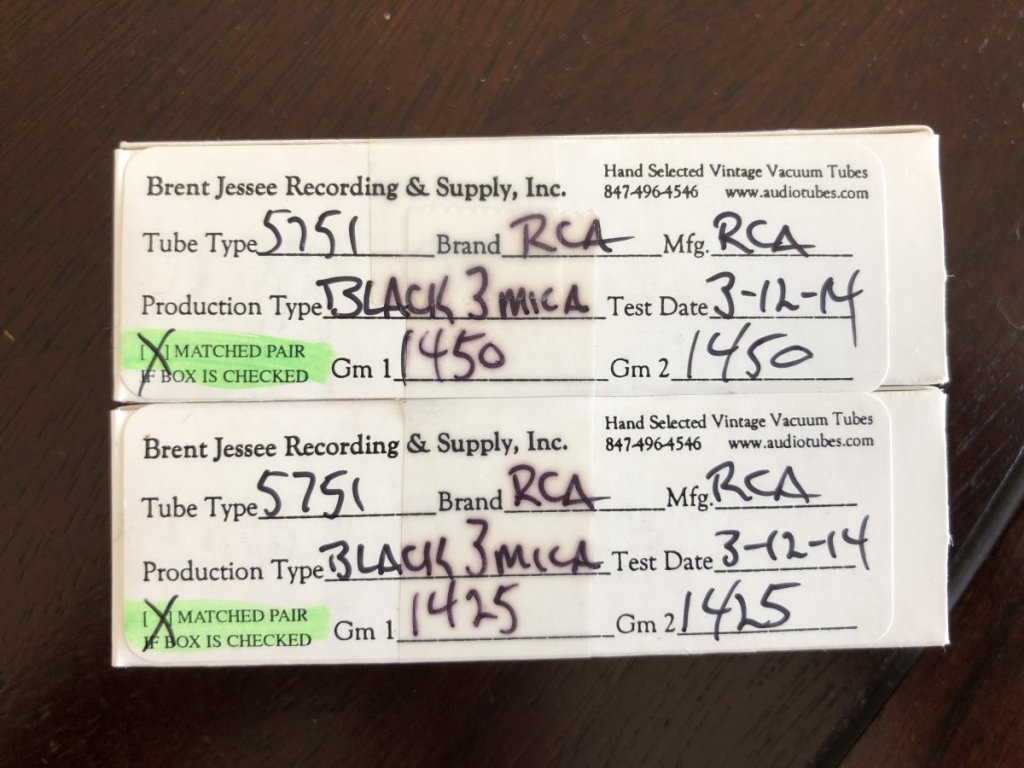 Brent Jessee Recording & Supply, Inc. Hand Selected Vintage Vacuum Tubes
847-496-4546 www.audiotubes.com
Tube Type 5751 Brand RCA Mfg. RCA
Production Type BLACK 3 MICA Test Date 3-12-14
[X] MATCHED PAIR
IF BOX IS CHECKED Gm 1 1450 Gm 2 1450
Brent Jessee Recording & Supply, Inc. Hand Selected Vintage Vacuum Tubes
847-496-4546 www.audiotubes.com
Tube Type 5751 Brand RCA Mfg. RCA
Production Type BLACK 3 MICA Test Date 3-12-14
[X] MATCHED PAIR
IF BOX IS CHECKED Gm 1 1425 Gm 2 1425